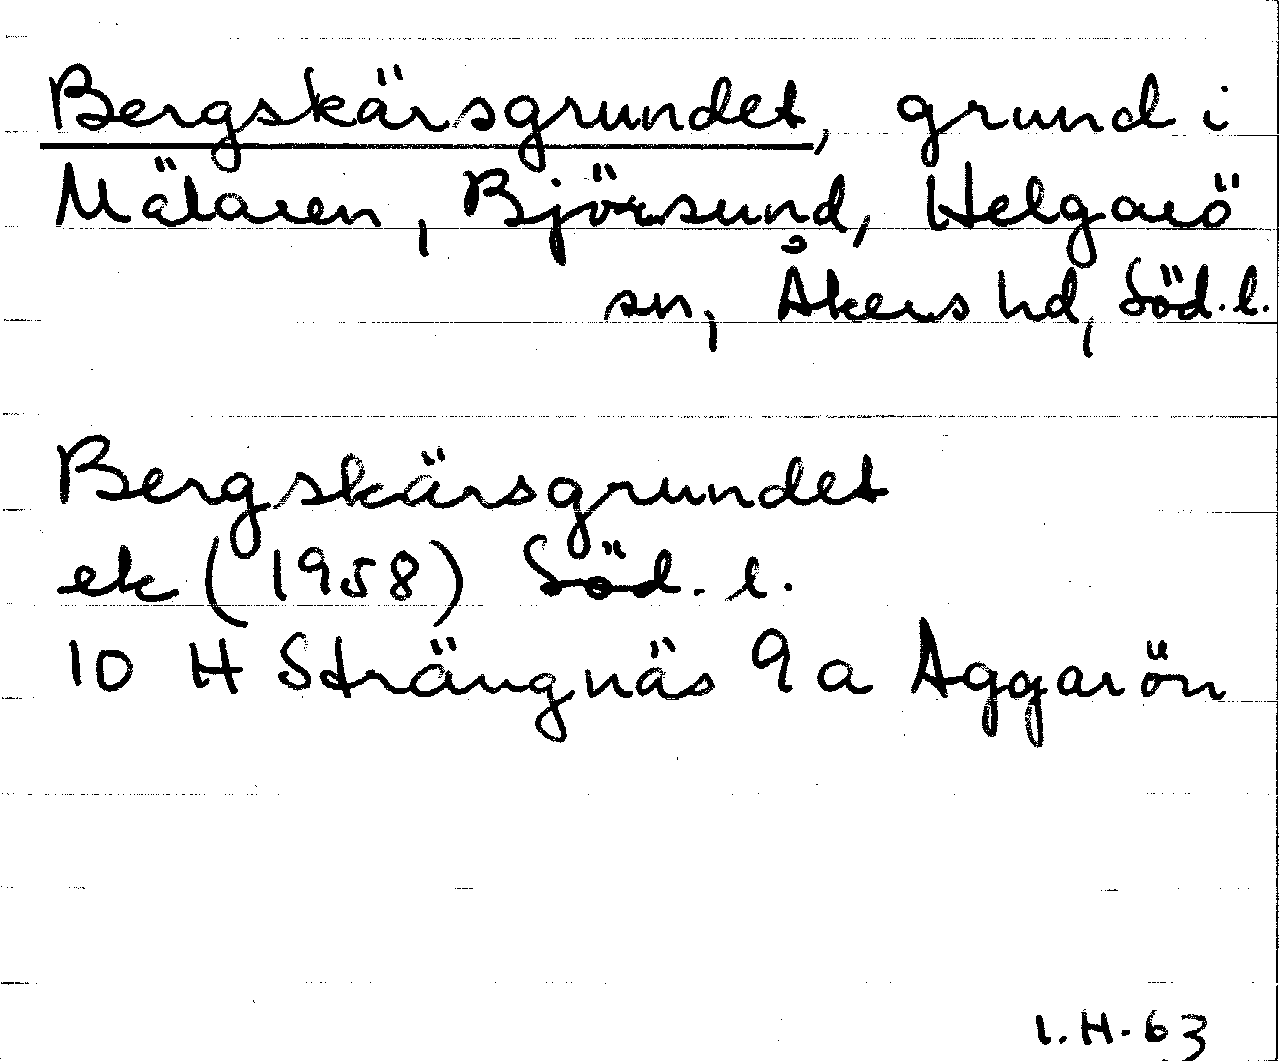 Bergskärsgrundet, grund i
Mälaren, Björsund, Helgarö
sn, Åkers hd, Söd. l.
Bergskärsgrundet
ek (1958) Söd. l.
10 H Strängnäs 9 a Aggarön
I. H. 63